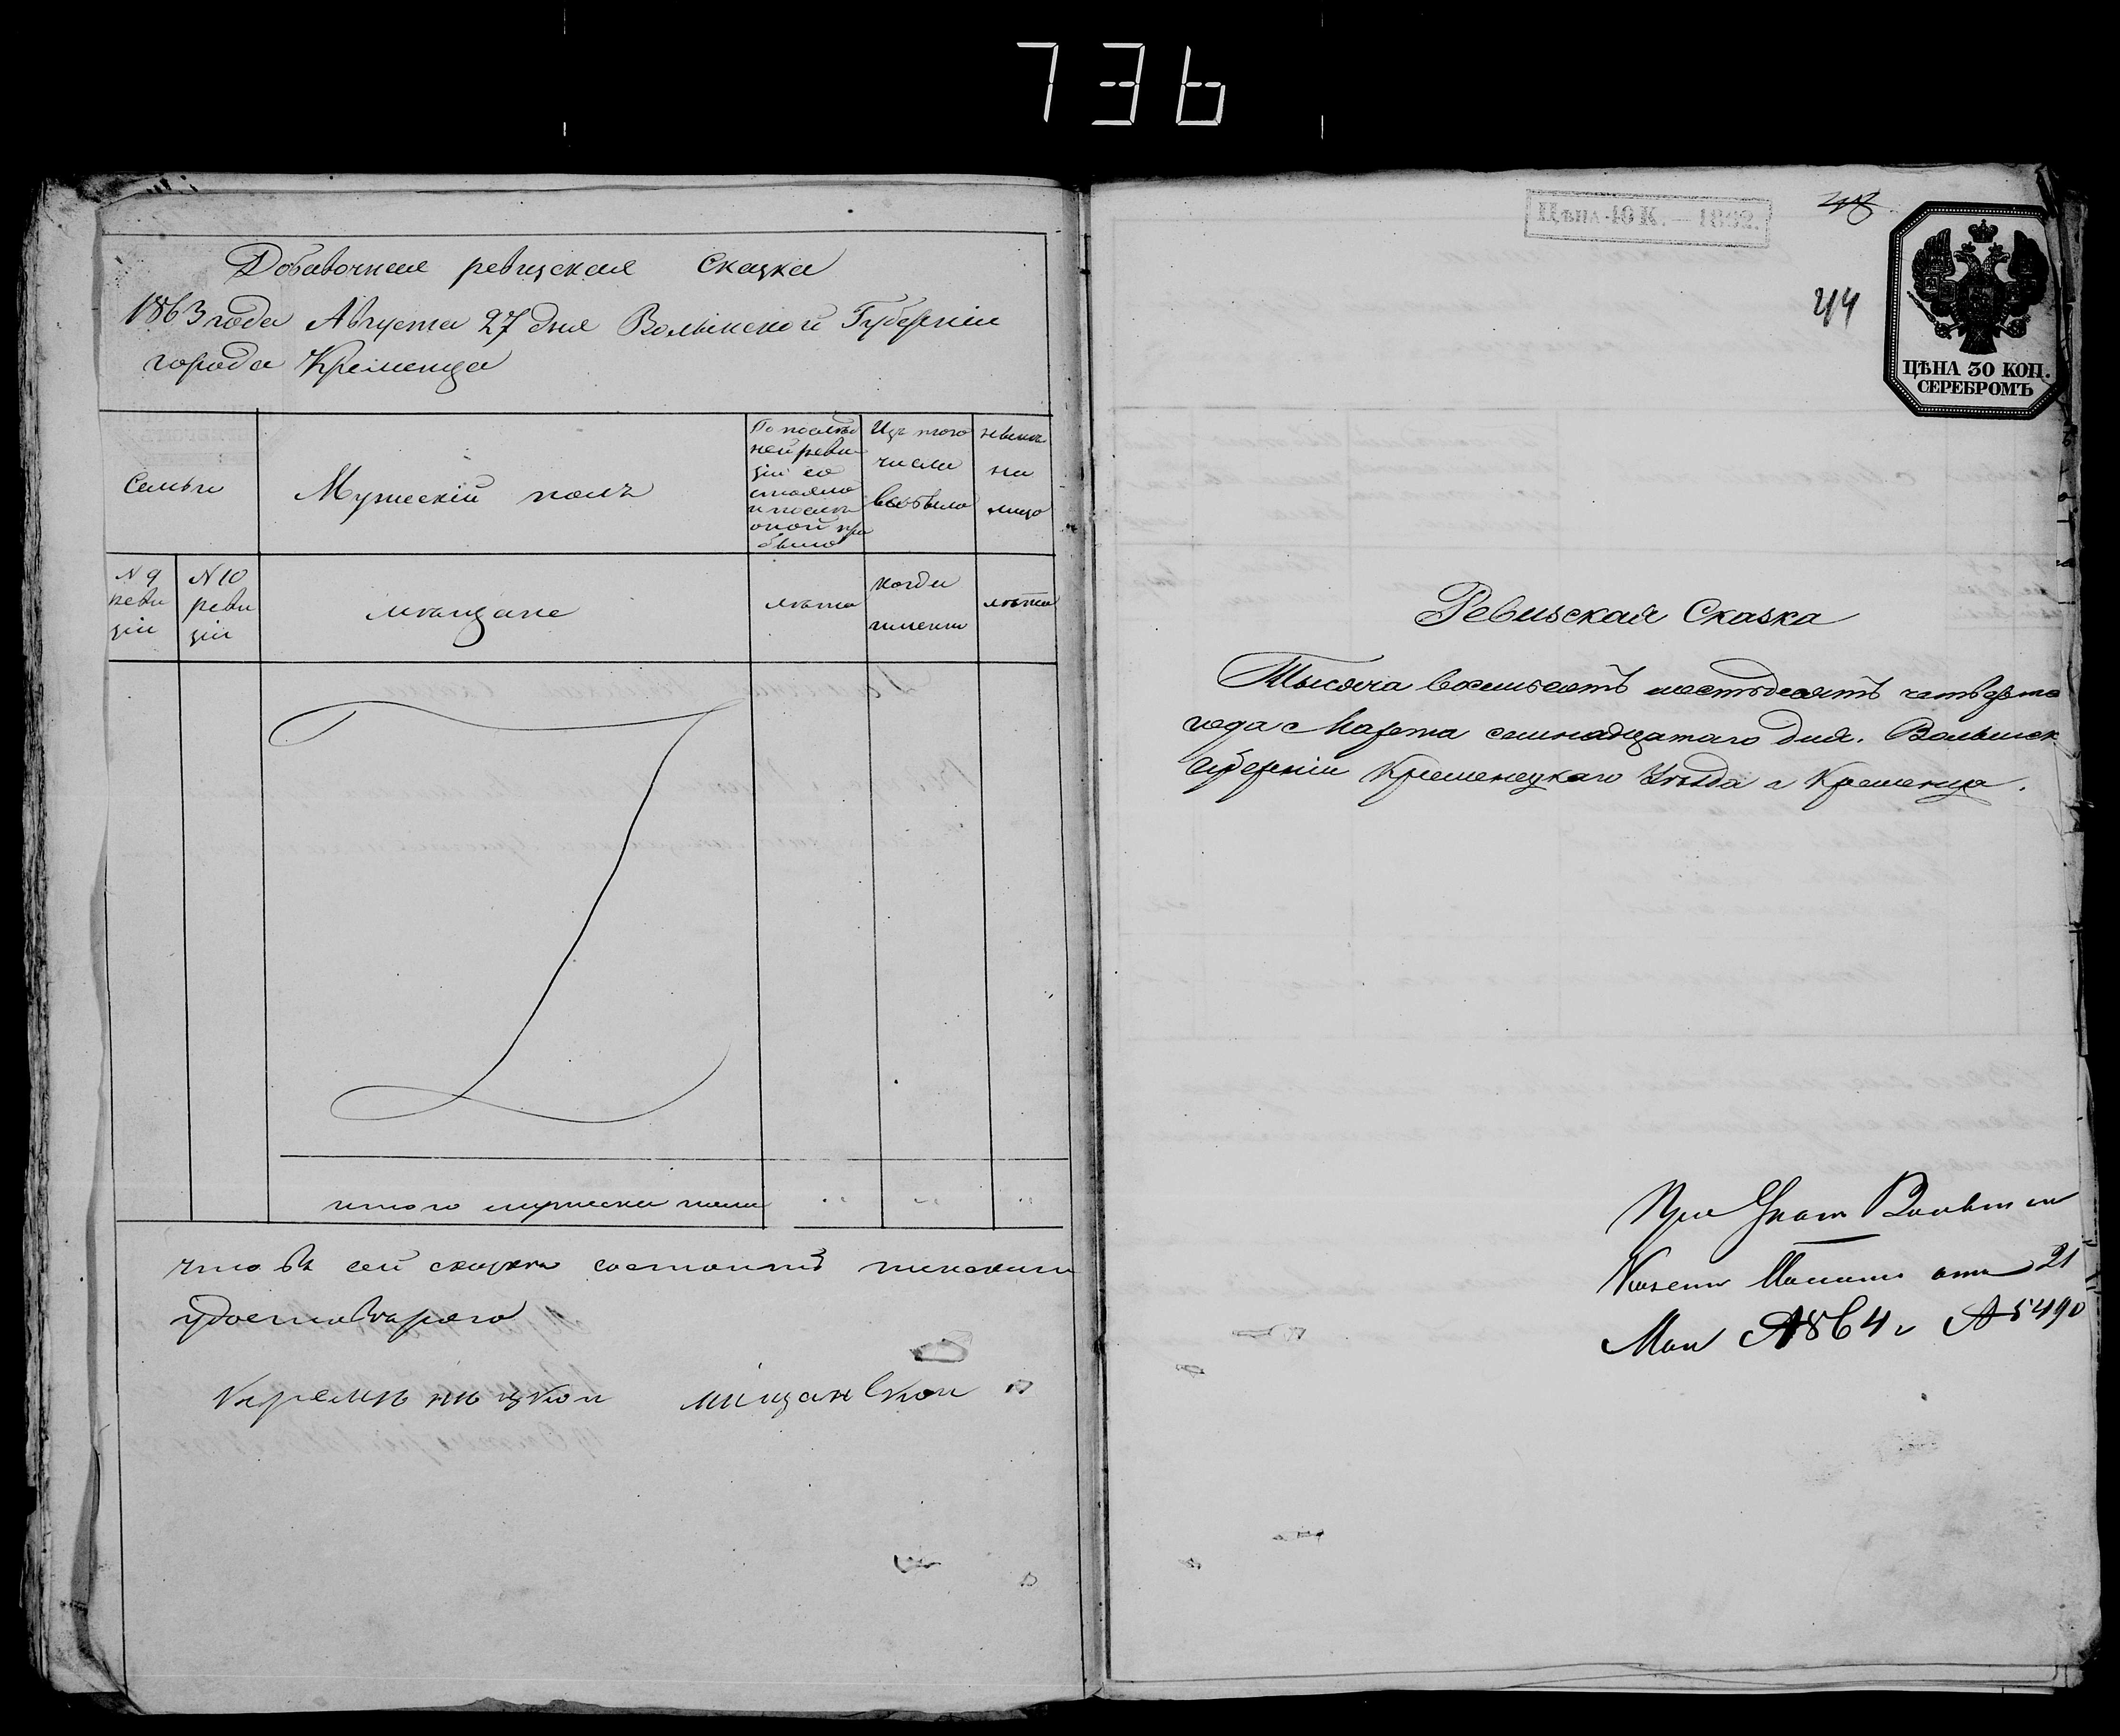 736
Добавочная ревизская Сказка
1863 года Августа 27 дня Волынской Губерніи
города Кременца
Семьи
Мужескій полъ
По послѣд
ней реви
зіи со
стояло
и послѣ
оной при
было
Изъ того
числа
выбыло
нынѣ
на
лицо
N 9
реви
зіи
N 10
реви
зіи
мѣщане
лѣта
когда
именно
лѣта
итого мужеска пола
что въ сей сказки состоитъ
удостовѣряю
Кременецкой мищанской
Цѣна 40 К. — 1862.
44
ЦѢНА 30 КОП.
СЕРЕБРОМЪ
Ревизская Сказка
Тысяча восемьсотъ шестьдесятъ четверто
года Марта семнадцатаго дня. Волынск
Губерніи Кременецкаго Уѣзда г Кременца.
При Указ Волын
Казен Палаты отъ 21
Мая 1864 г № 5490